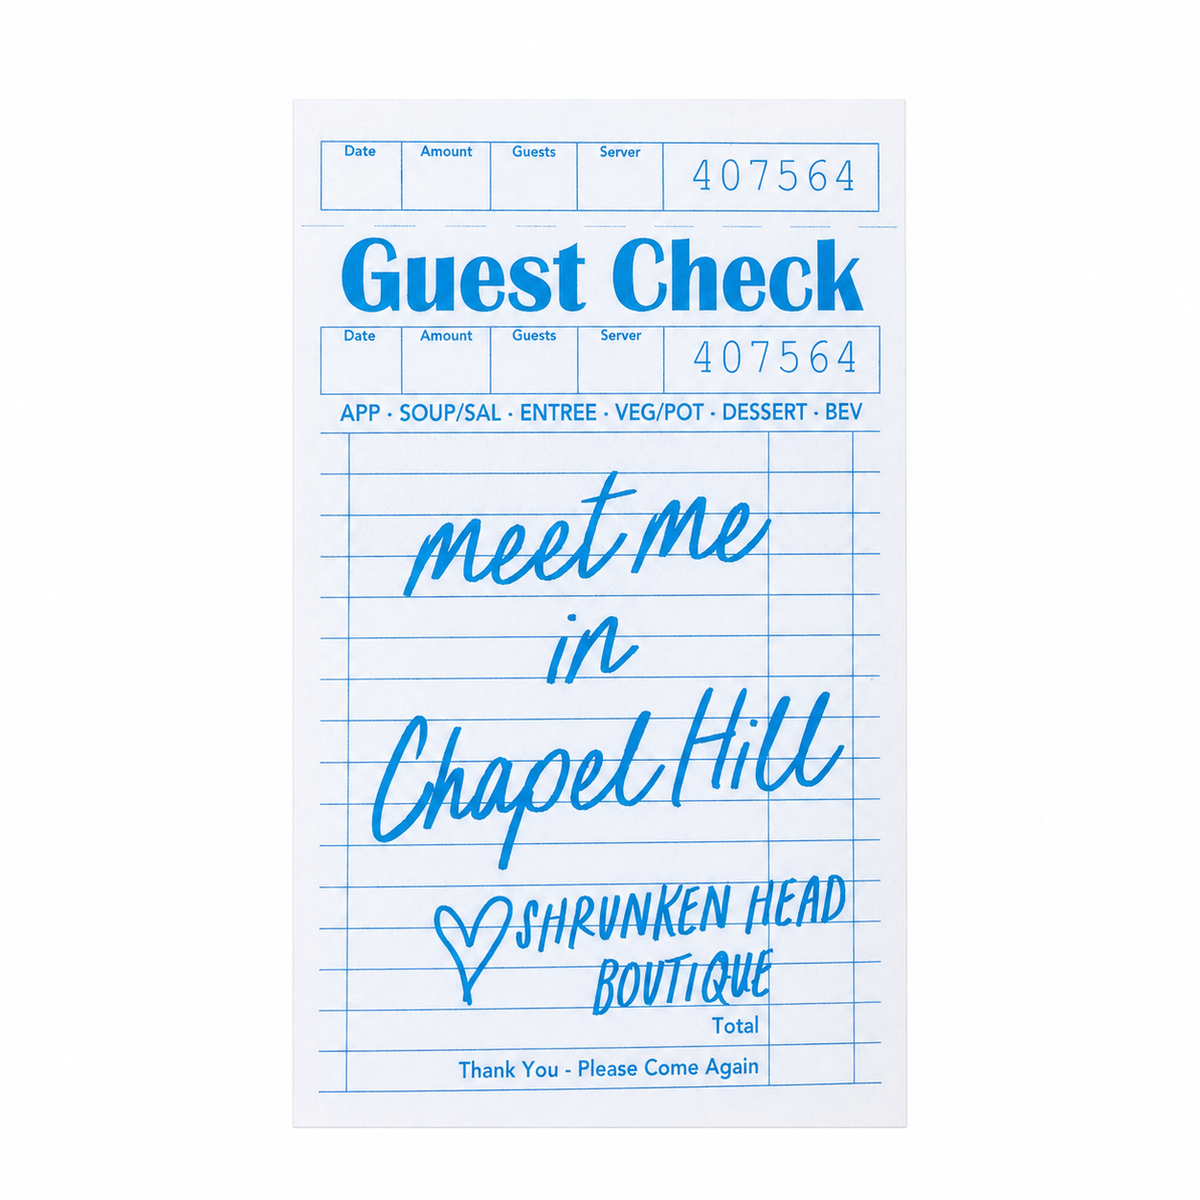 Date Amount Guests Server 407564
Guest Check
Date Amount Guests Server 407564
APP · SOUP/SAL · ENTREE · VEG/POT · DESSERT · BEV
meet me
in
Chapel Hill
SHRUNKEN HEAD
BOUTIQUE
Total
Thank You - Please Come Again